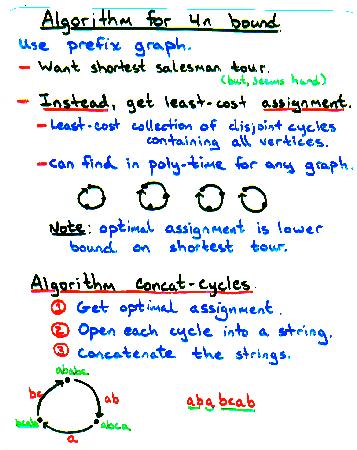 Algorithm for 4n bound
Use prefix graph.
- Want shortest salesman tour.
(but, seems hard)
- Instead, get least-cost assignment.
- Least-cost collection of disjoint cycles
containing all vertices.
- can find in poly-time for any graph.
Note: optimal assignment is lower
bound on shortest tour.
Algorithm concat-cycles
① Get optimal assignment.
② Open each cycle into a string.
③ Concatenate the strings.
ababc
bc
ab
bcab
abca
a
aba bcab